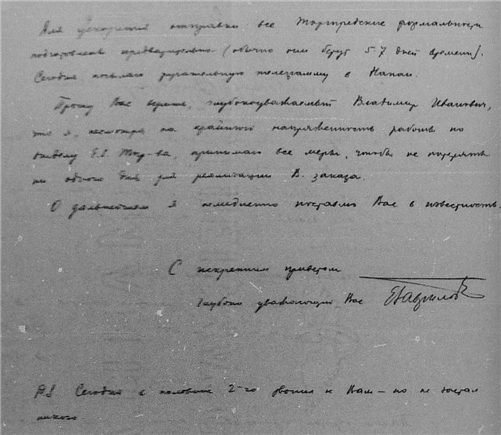 Для ускорения отправки все Торгпредские формальности
подготовлены предварительно (обычно они берут 5-7 дней времени).
Сегодня посылаю ругательную телеграмму в
Прошу Вас верить, глубокоуважаемый Владимир Иванович,
что я, несмотря на крайнюю напряженность работы по
отделу, принимаю все меры, чтобы не потерять
ни одного дня для реализации В. заказа.
О дальнейшем я немедленно поставлю Вас в известность.
С искренним приветом
глубоко уважающий Вас
P.S. Сегодня в половине 2-го звонил к Вам – но не застал
никого